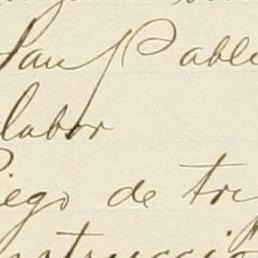 San Pablo
labor
riego de tri
strucció